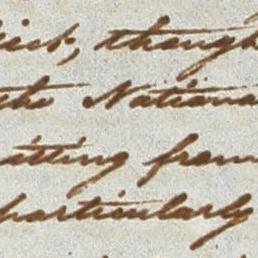 though
the Nationa
itting from
particularly